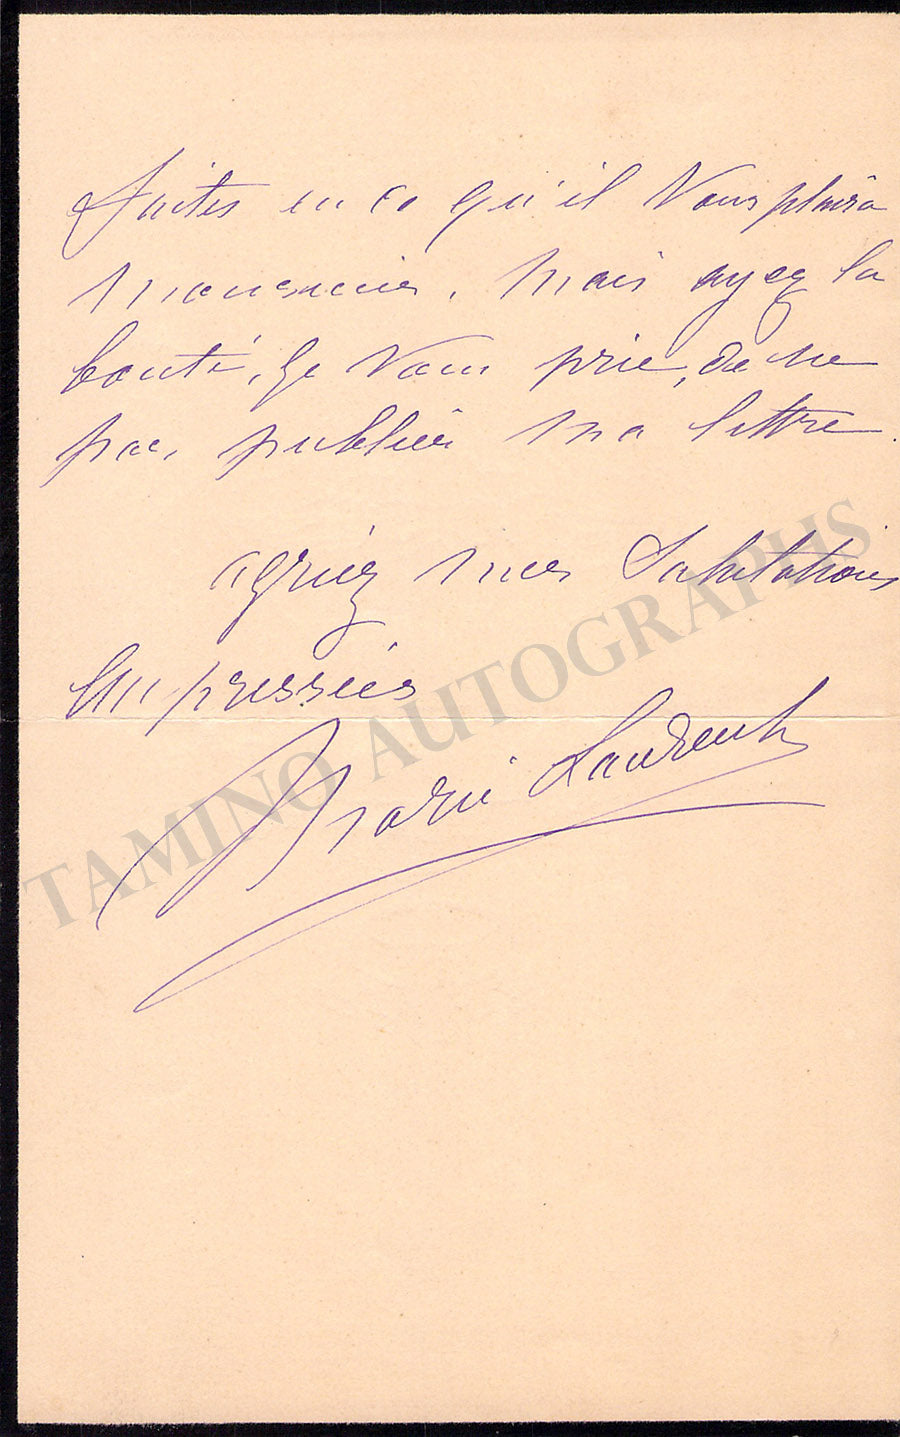 faites en ce qu'il Vous plaira
monsieur, mais ayez la
bonté, je Vous prie, de ne
pas publier ma lettre.
agréez mes Salutations
Empressées
Marie Laurent
TAMINO AUTOGRAPHS